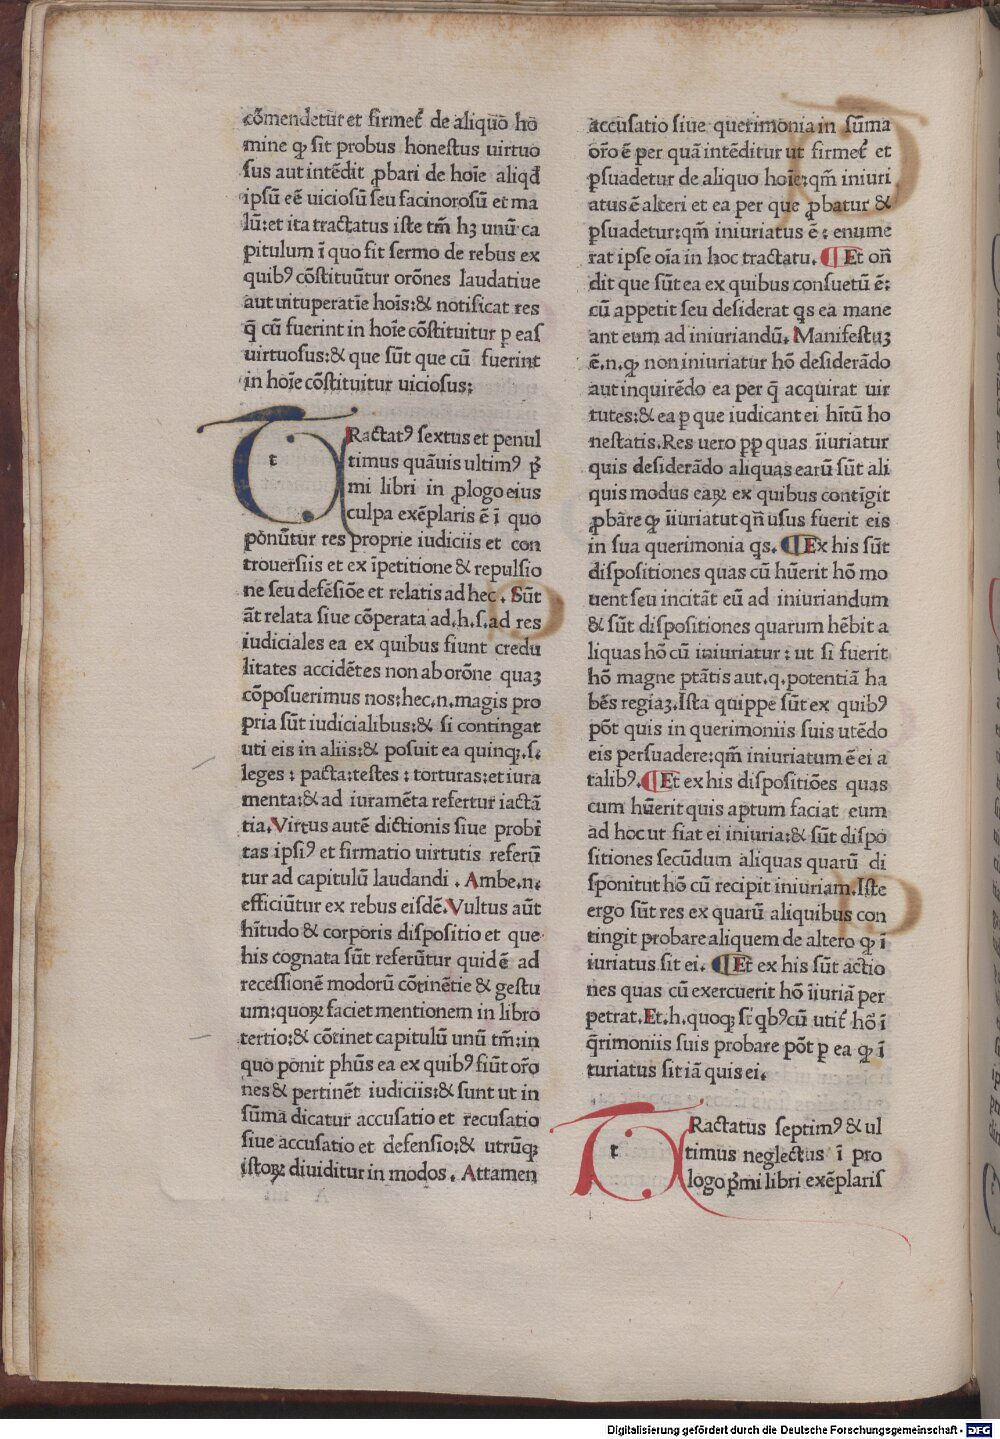 cōmendetur et firmet᷑ de aliquo ho
mine ꝙ sit probus honestus uirtuo
sus aut intēdit ꝓbari de hoīe aliqđ
ipsū eē uiciosū seu facinorosū et ma
lū:et ita tractatus iste tm̄ hꝫ unū ca
pitulum ī quo fit sermo de rebus ex
quibꝰ cōstituūtur orōnes laudatiue
aut uituperatīe hoīs:& notificat res
q̄ cū fuerint in hoīe cōstituitur ꝑ eas
uirtuosus:& que sūt que cū fuerint
in hoīe cōstituitur uiciosus:
tRactatꝰ sextus et penul
timus quāuis ultimꝰ pͥ
mi libri in ꝓlogo eius
culpa exēplaris ē ī quo
ponūtur res proprie iudiciis et con
trouersiis et ex īpetitione & repulsio
ne seu defēsiōe et relatis ad hec. Sūt
āt relata siue cōperata ad.h.s.ad res
iudiciales ea ex quibus fiunt credu
litates accidētes non ab orōne quaꝫ
cōposuerimus nos:hec.n.magis pro
pria sūt iudicialibus:& si contingat
uti eis in aliis:& posuit ea quinqꝫ.s.
leges : pacta:testes : torturas:et iura
menta:& ad iuramēta refertur iactā
tia.Virtus autē dictionis siue probi
tas ipsiꝰ et firmatio uirtutis referū
tur ad capitulū laudandi . Ambe.n.
efficiūtur ex rebus eisdē.Vultus aūt
hītudo & corporis dispositio et que
his cognata sūt referūtur quidē ad
recessionē modorū cōtinētie & gestu
um:quoꝝ faciet mentionem in libro
tertio:& cōtinet capitulū unū tm̄:in
quo ponit phūs ea ex quibꝰ fiūt orō
nes & pertinēt iudiciis:& sunt ut in
sūma dicatur accusatio et recusatio
siue accusatio et defensio:& utrūqꝫ
istoꝝ diuiditur in modos. Attamen
accusatio siue querimonia in sūma
orō ē per quā intēditur ut firmet᷑ et
ꝑsuadetur de aliquo hoīe:qm̄ iniuri
atus ē alteri et ea per que ꝓbatur &
ꝑsuadetur:qm̄ iniuriatus ē : enume
rat ipse oīa in hoc tractatu. ¶ Et on̄
dit que sūt ea ex quibus consuetū ē:
cū appetit seu desiderat qͥs ea mane
ant eum ad iniuriandū. Manifestuꝫ
ē.n.ꝙ non iniuriatur hō desiderādo
aut inquirēdo ea per q̄ acquirat uir
tutes:& ea ꝑ que iudicant ei hītū ho
nestatis.Res uero ꝓpꝑ quas īiuriatur
quis desiderādo aliquas earū sūt ali
quis modus eaꝝ ex quibus contīgit
ꝓbare ꝙ īiuriatut qn̄ usus fuerit eis
in sua querimonia qͥs. ¶ Ex his sūt
dispositiones quas cū hūerit hō mo
uent seu incitāt eū ad iniuriandum
& sūt dispositiones quarum hēbit a
liquas hō cū iniuriatur : ut si fuerit
hō magne ptātis aut.q.potentiā ha
bēs regiaꝫ.Ista quippe sūt ex quibꝰ
pōt quis in querimoniis suis utēdo
eis persuadere:qm̄ iniuriatum ē ei a
talibꝰ.¶ Et ex his dispositiōes quas
cum hūerit quis aptum faciat eum
ad hoc ut fiat ei iniuria:& sūt dispo
sitiones secūdum aliquas quarū di
sponitut hō cū recipit iniuriam.Iste
ergo sūt res ex quarū aliquibus con
tingit probare aliquem de altero ꝙ ī
iuriatus sit ei. ¶ Et ex his sūt actio
nes quas cū exercuerit hō īiuriā per
petrat.Et.h.quoqꝫ st̄ qͥbꝰ cū utit᷑ hō ī
q̄rimoniis suis probare pōt ꝑ ea ꝙ ī
turiatus sit iā quis ei.
tRactatus septimꝰ & ul
timus neglectus ī pro
logo pͥmi libri exēplaris
Digitalisierung gefördert durch die Deutsche Forschungsgemeinschaft - DFG